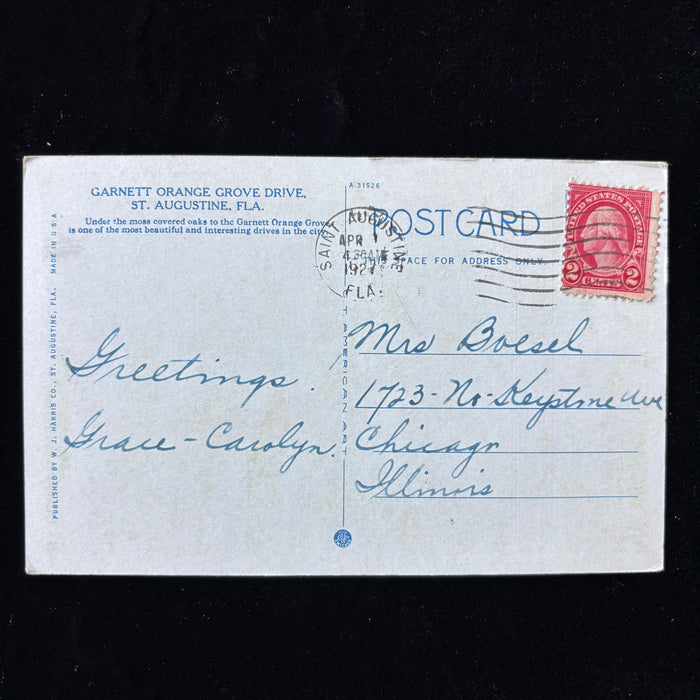 GARNETT ORANGE GROVE DRIVE,
ST. AUGUSTINE, FLA.
Under the moss covered oaks to the Garnett Orange Grove
is one of the most beautiful and interesting drives in the city
A-31526
POST CARD
THIS SPACE FOR ADDRESS ONLY
SAINT AUGUSTINE
APR 1
192
FLA.
UNITED STATES POSTAGE
2 CENTS 2
Greetings.
Grace - Carolyn.
Mrs Boesel
1723 - No - Keystone Ave
Chicago
Illinois
PUBLISHED BY W. J. HARRIS CO., ST. AUGUSTINE, FLA. MADE IN U S A
AMERICAN ART